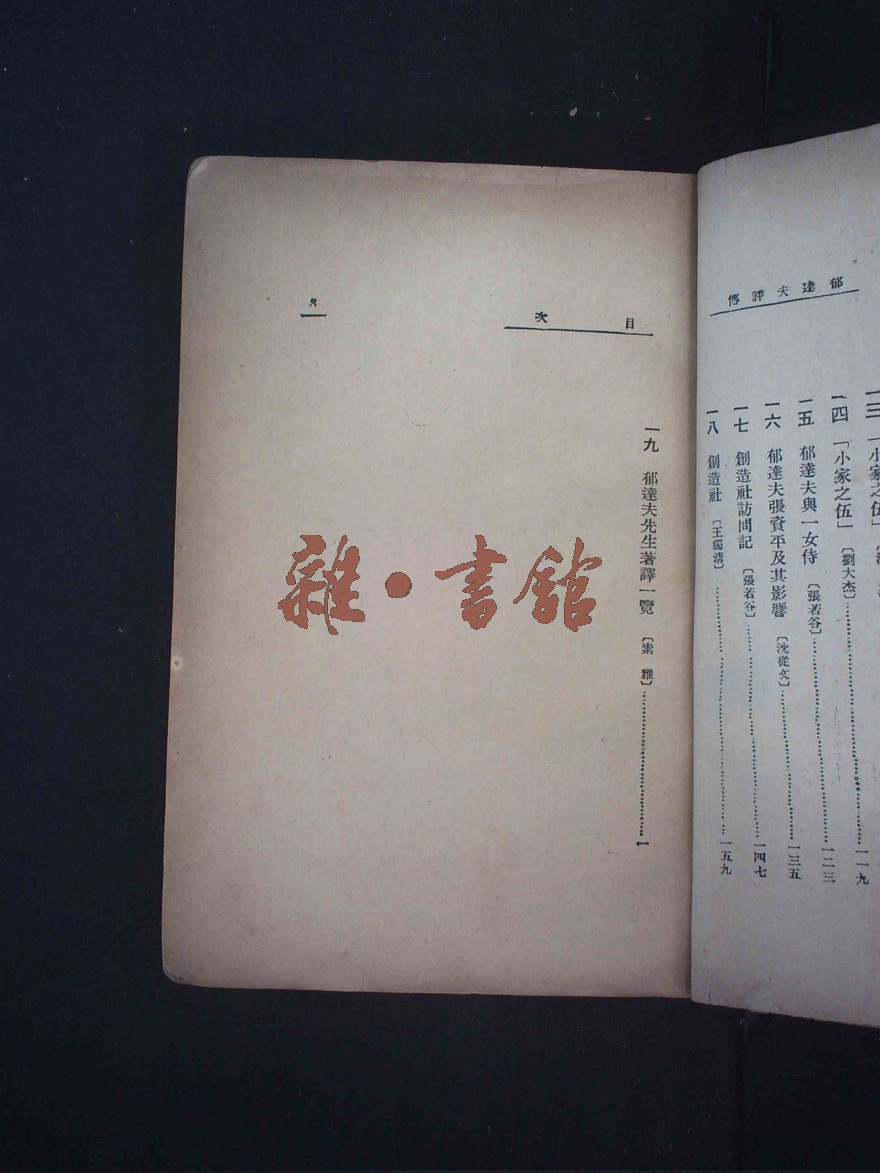 郁達夫評傳
一三 「小家之伍」
一四 「小家之伍」 〔劉大杰〕 一一九
一五 郁達夫與一女侍 〔張若谷〕 一二三
一六 郁達夫張資平及其影響 〔沈從文〕 一三五
一七 創造社訪問記 〔張若谷〕 一四七
一八 創造社 〔王獨清〕 一五九
目次
8
一九 郁達夫先生著譯一覽 〔素雅〕 1
雜·書館